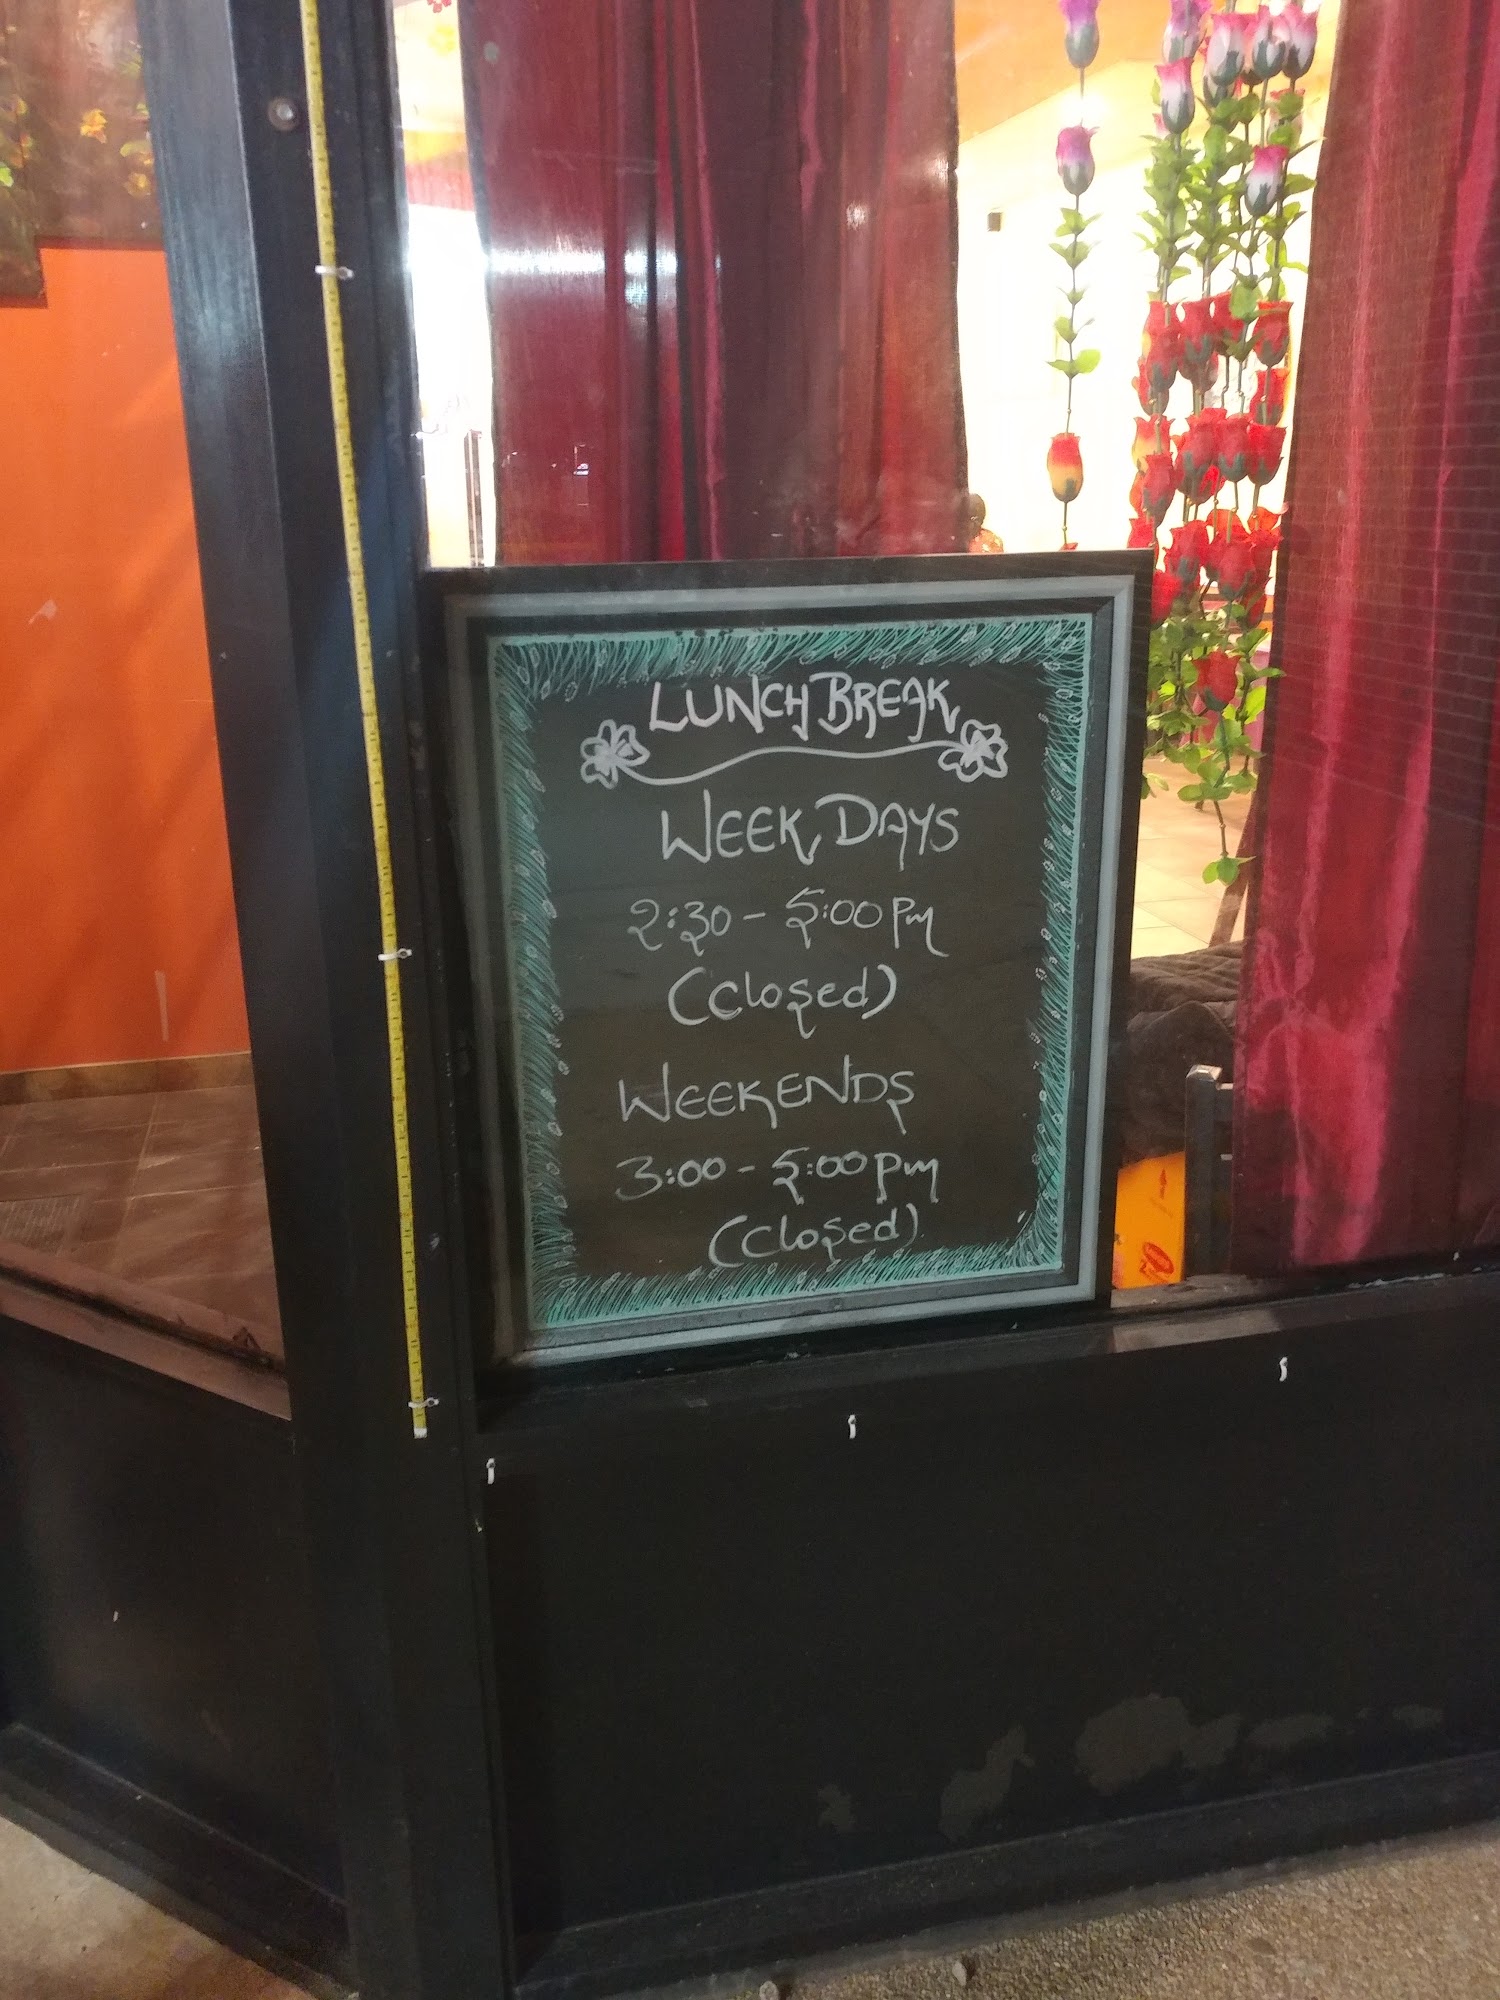 LUNCH BREAK
WEEK DAYS
2:30 - 5:00 Pm
(Closed)
WEEKENDS
3:00 - 5:00 pm
(Closed)